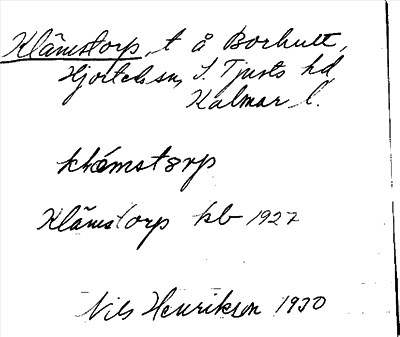 Klämstorp, t å Borhult,
Hjorteds sn, S. Tjusts hd,
Kalmar l.
klämstorp
Klämstorp kb 1927
Nils Henrikson 1930